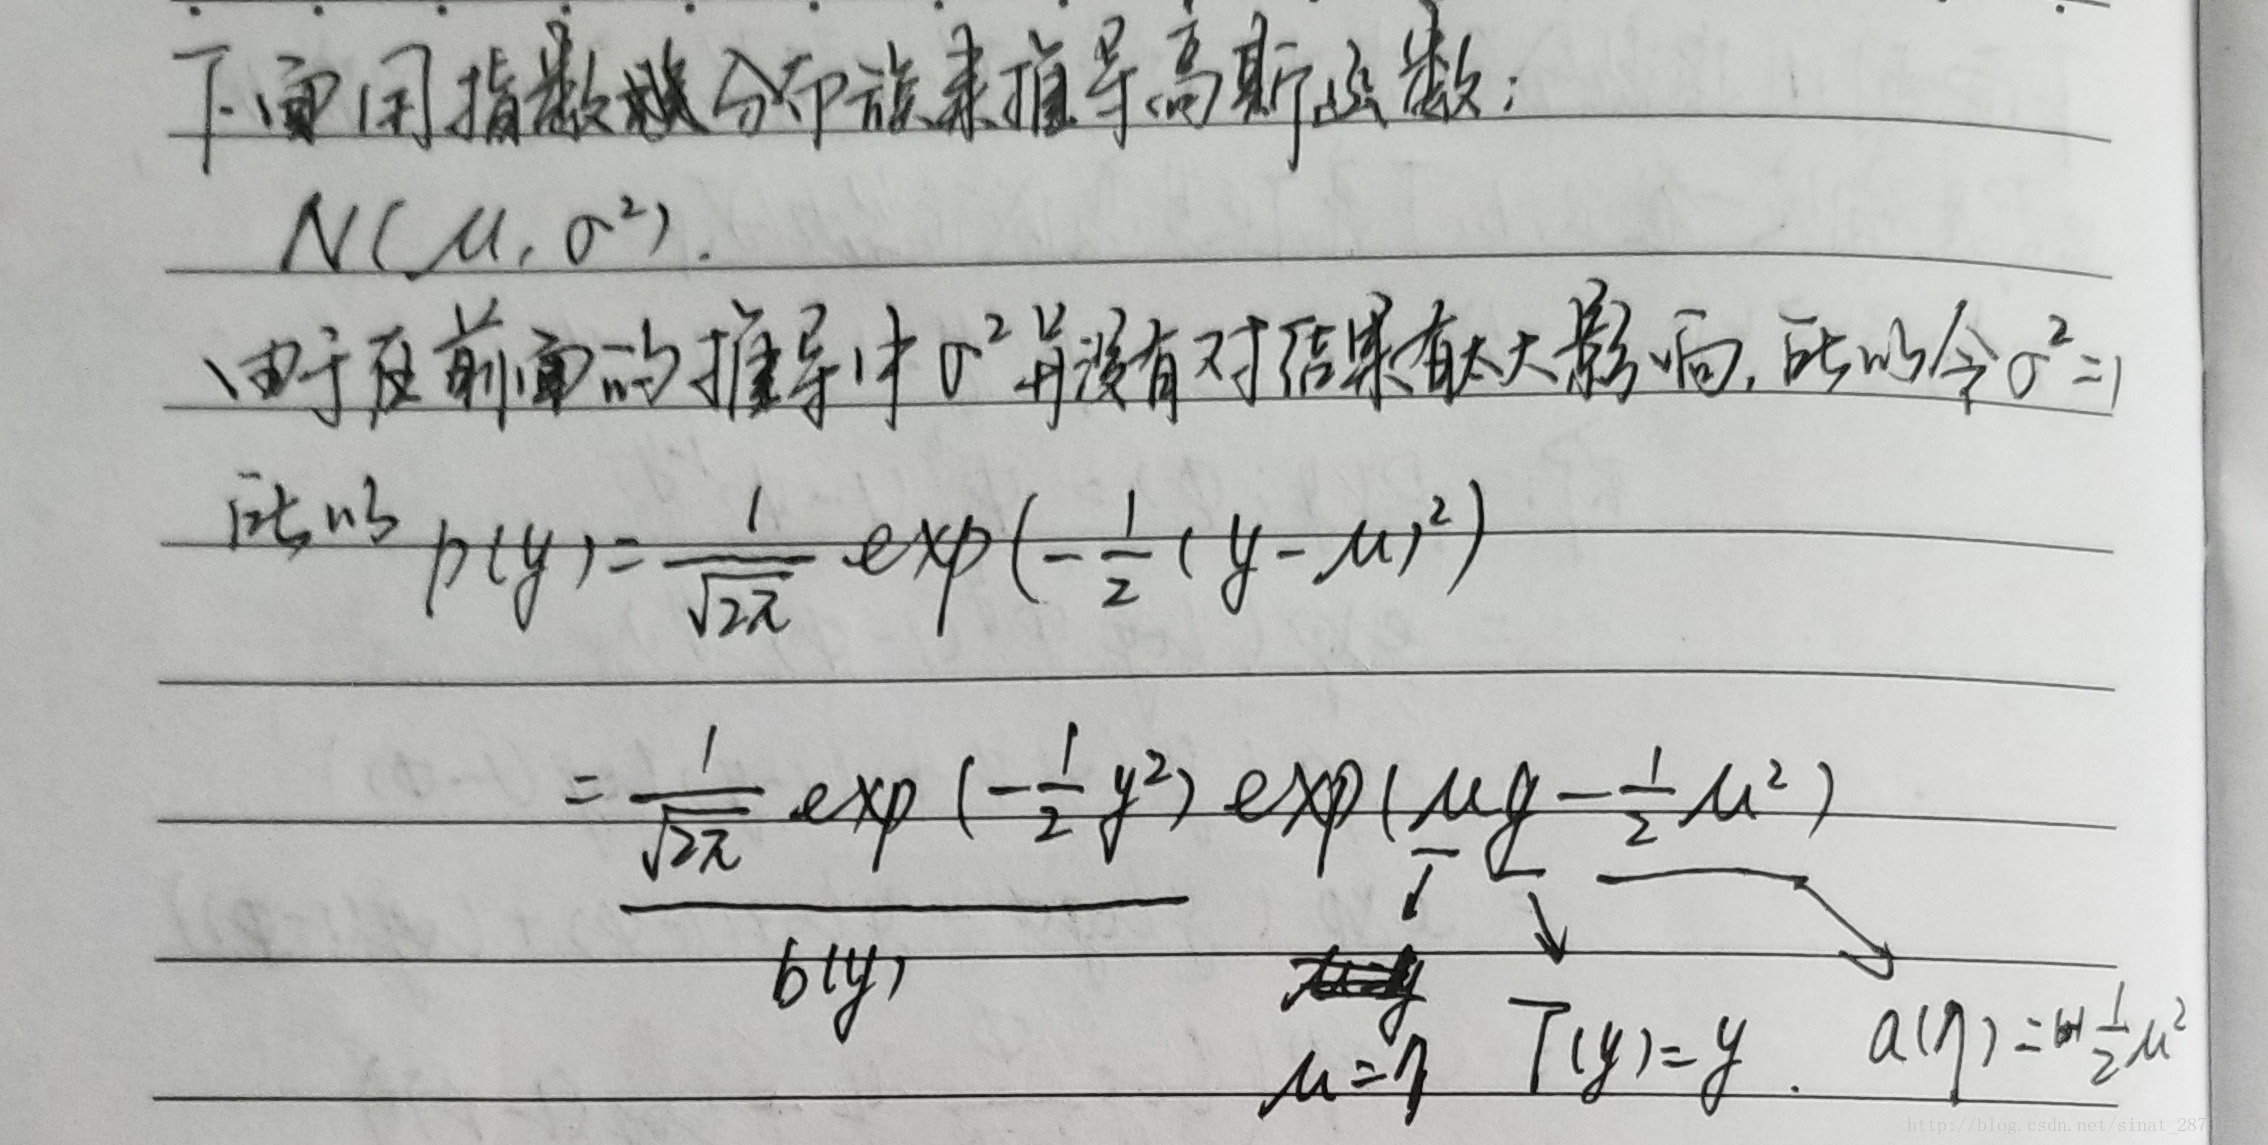 下面用指数分布族来推导高斯函数:
N(μ, σ²).
由于在前面的推导中σ²并没有对结果有太大影响,所以令σ²=1
所以 p(y) = 1/√2π exp(-1/2(y-μ)²)
= 1/√2π exp(-1/2 y²) exp(μy - 1/2 μ²)
b(y)
μ=η T(y)=y. a(η)=1/2 μ²
http://blog.csdn.net/sinat_287